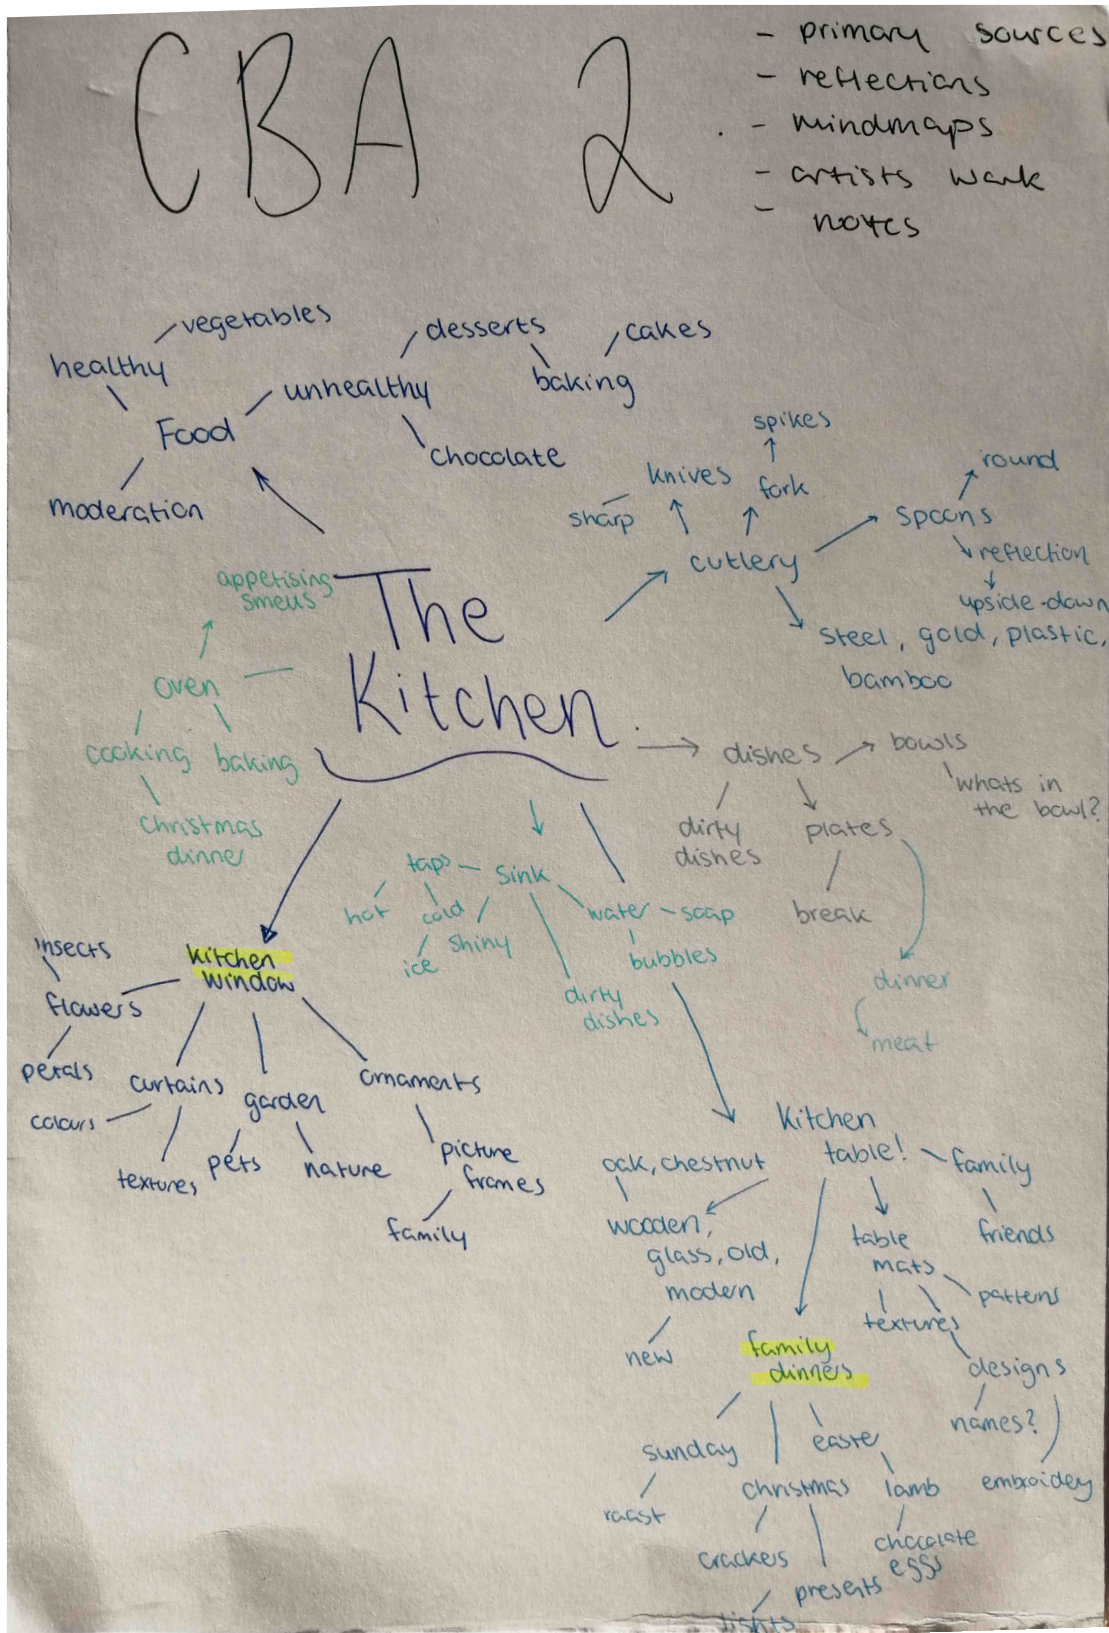 CBA 2
- primary sources
- reflections
- mindmaps
- artists work
- notes
vegetables
healthy
Food
moderation
unhealthy
desserts
baking
cakes
chocolate
spikes
knives
fork
sharp
cutlery
spoons
round
reflection
upside-down
steel, gold, plastic,
bamboo
appetising
smells
The
Kitchen
oven
cooking
baking
christmas
dinner
dishes
bowls
whats in
the bowl?
dirty
dishes
plates
break
dinner
meat
sink
taps
hot
cold
ice
shiny
water
soap
bubbles
dirty
dishes
kitchen
window
insects
flowers
petals
curtains
colours
textures
garden
pets
nature
ornaments
picture
frames
family
Kitchen
table!
family
friends
oak, chestnut
wooden,
glass, old,
modern
new
table
mats
patterns
textures
designs
names?
embroidey
family
dinners
sunday
roast
christmas
crackers
presents
lights
easter
lamb
chocolate
eggs